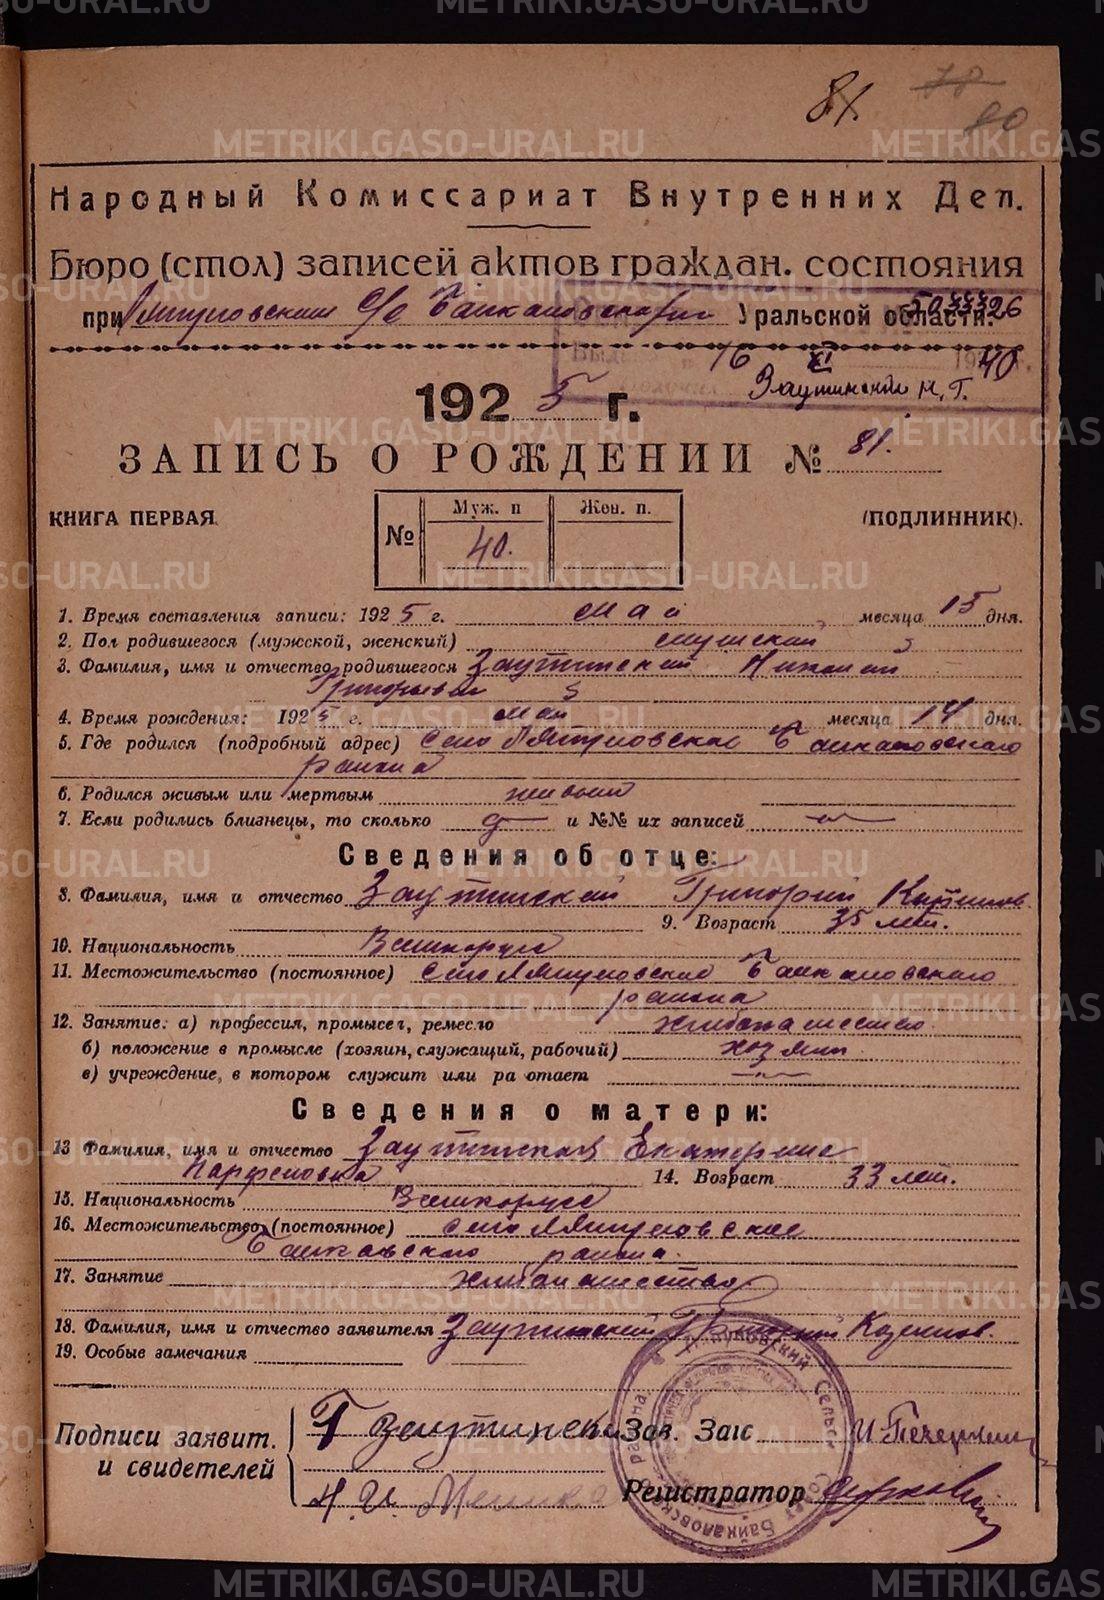 81.
78
80
Народный Комиссариат Внутренних Дел.
Бюро (стол) записей актов граждан. состояния
при Ляпуновском с/с Байкаловского Уральской области.
16 XI 1940
Заутинский Н. Г.
1925 г.
ЗАПИСЬ О РОЖДЕНИИ № 81.
КНИГА ПЕРВАЯ.
№ Муж. п Жен. п.
40.
(ПОДЛИННИК).
1. Время составления записи: 1925 г. май месяца 15 дня.
2. Пол родившегося (мужской, женский) мушской
3. Фамилия, имя и отчество родившегося Заутинский Николай
Григорьевич
4. Время рождения: 1925 г. май месяца 14 дня.
5. Где родился (подробный адрес) село Ляпуновское Байкаловского
района
6. Родился живым или мертвым живым
7. Если родились близнецы, то сколько и №№ их записей
Сведения об отце:
8. Фамилия, имя и отчество Заутинский Григорий
9. Возраст 35 лет.
10. Национальность Великорусс
11. Местожительство (постоянное) село Ляпуновское Байкаловского
района
12. Занятие: а) профессия, промысел, ремесло хлебопашество.
б) положение в промысле (хозяин, служащий, рабочий) хозяин.
в) учреждение, в котором служит или ра отает
Сведения о матери:
13 Фамилия, имя и отчество Заутинская Екатерина
Парфеновна 14. Возраст 33 лет.
15. Национальность Великорусс
16. Местожительство (постоянное) село Ляпуновское
района.
17. Занятие хлебопашество
18. Фамилия, имя и отчество заявителя Заутинский Григорий
19. Особые замечания
Подписи заявит. и свидетелей
Г Заутински
Зав. Загс
Регистратор
METRIKI.GASO-URAL.RU